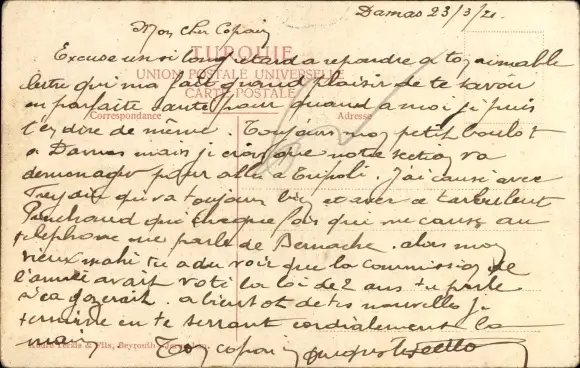 Damas 23/3/21.
Mon Cher Copain
TURQUIE
Excuse un si long retard a repondre a ton aimable
UNION POSTALE UNIVERSELLE
lettre qui ma fait grand plaisir de te savoir
CARTE POSTALE
en parfaite sante pour quand a moi je puis
Correspondance
Adresse
t'en dire de même. Toujours mon petit boulot
a Damas mais je crois que notre section va
demenager pour aller a Tripoli. J'ai causé avec
qui va toujours bien et avec ce turbulent
Penchaud qui chaque fois qui me cause au
telephone me parle de Bernache. alors mon
vieux tu a du voir que la commission de
l'armée avait voté la loi de 2 ans tu parle
si ça gazerait. a bientot de tes nouvelles je
termine en te serrant cordialement la
main
Ton copain
André Terzis & Fils, Beyrouth